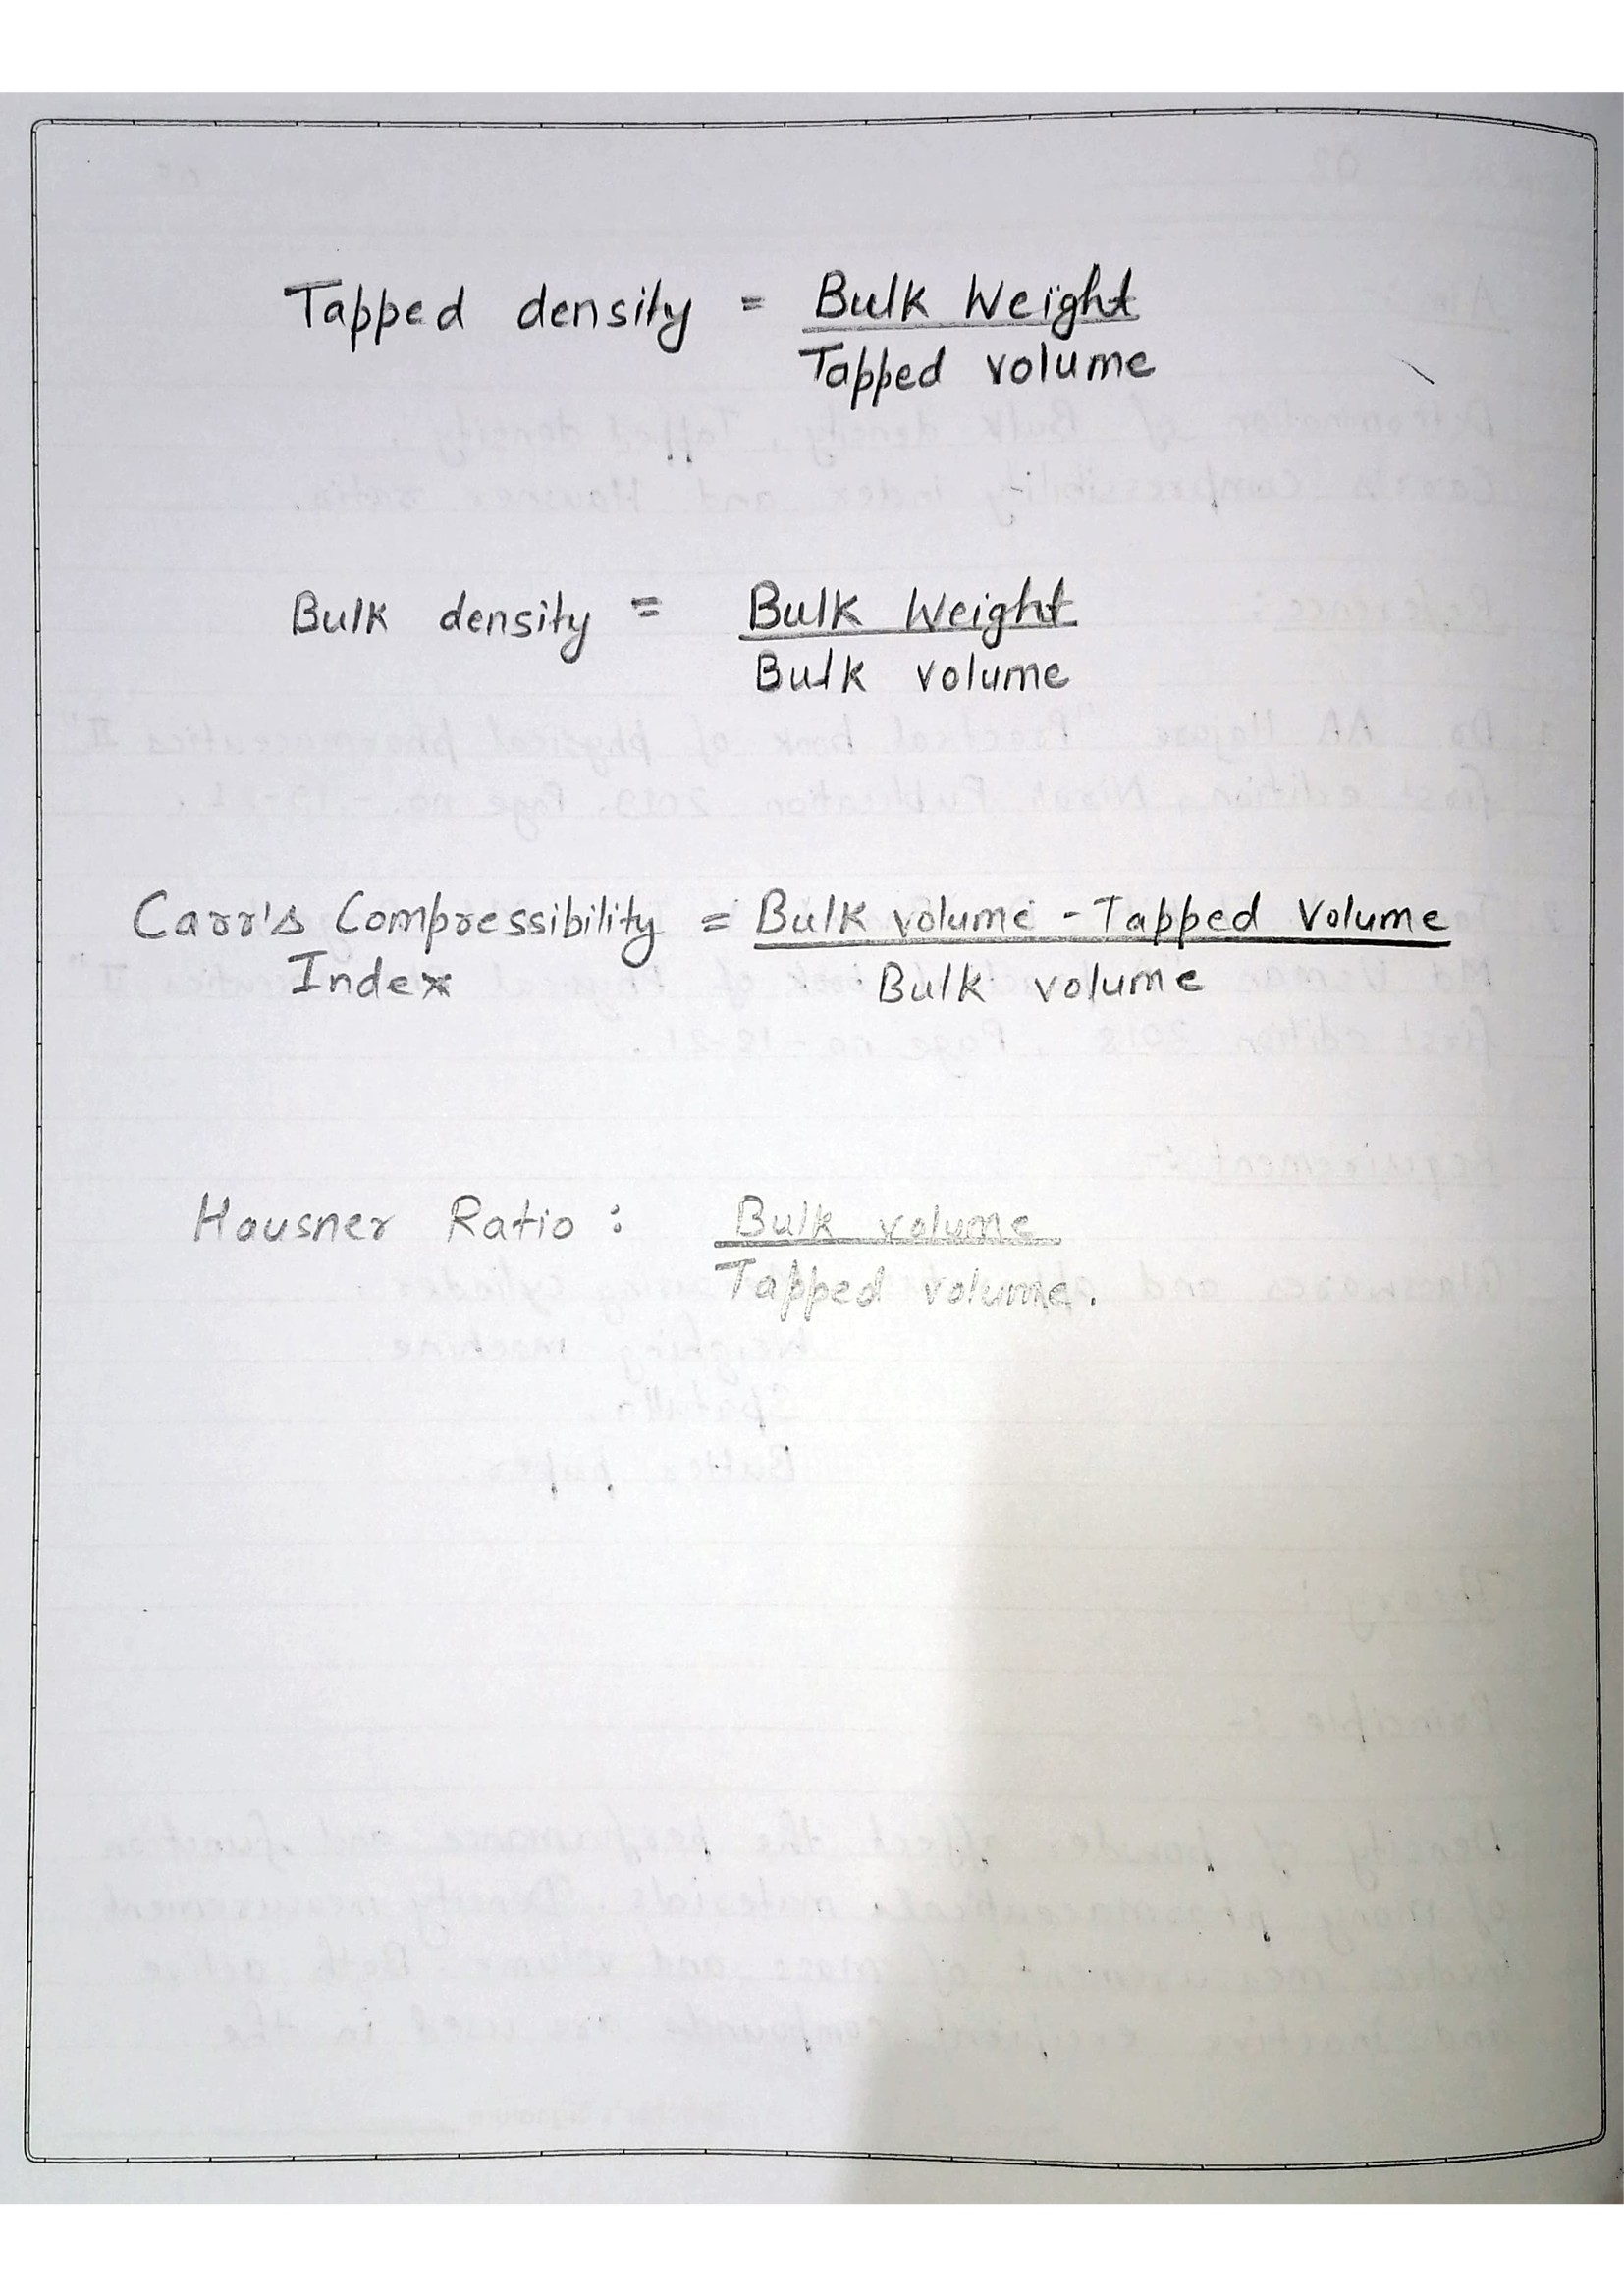 Tapped density = Bulk Weight
Tapped volume
Bulk density = Bulk Weight
Bulk volume
Carr's Compressibility = Bulk volume - Tapped Volume
Index Bulk volume
Hausner Ratio : Bulk volume
Tapped volume.